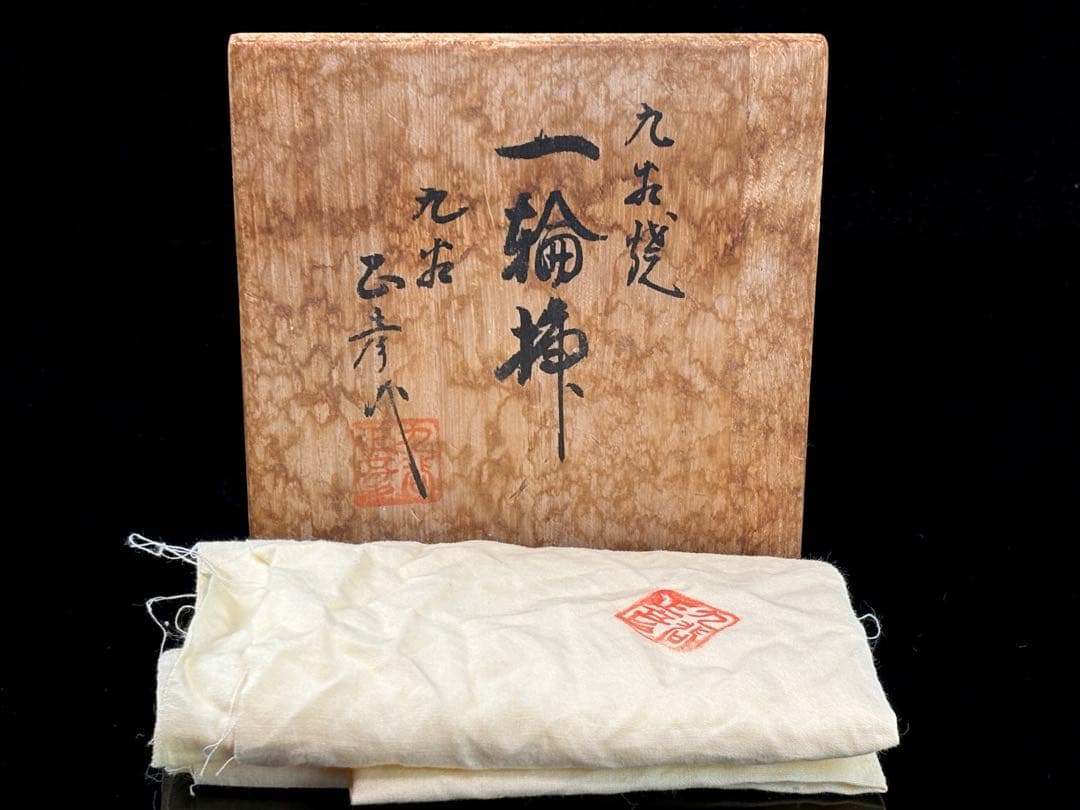 九谷焼
一輪挿
九谷
正彦作